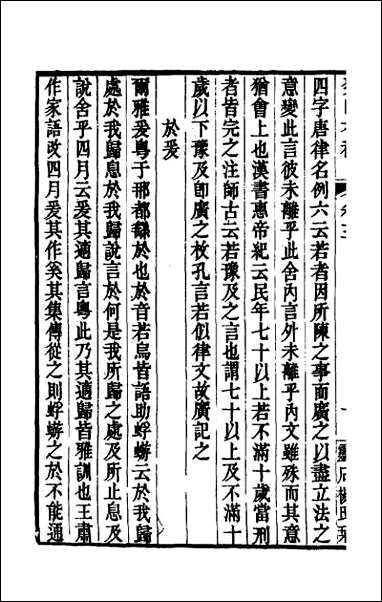 四字唐律名例六云若者因所陳之事而廣之以盡立法之
意變此言彼未離乎此舍內言外未離乎內文雖殊而其意
猶會上也漢書惠帝紀云民年七十以上若不滿十歲當刑
者皆完之注師古云若豫及之言也謂七十以上及不滿十
歲以下豫及即廣之枚孔言若似律文故廣記之
於爰
爾雅爰粵于那都繇於也於首若烏皆語助蜉蝣云於我歸
處於我歸息於我歸說言於何是我所歸之處及所止息及
說舍乎四月云爰其適歸言粵此乃其適歸皆雅訓也王肅
作家語改四月爰其作奚其集傳從之則蜉蝣之於不能通